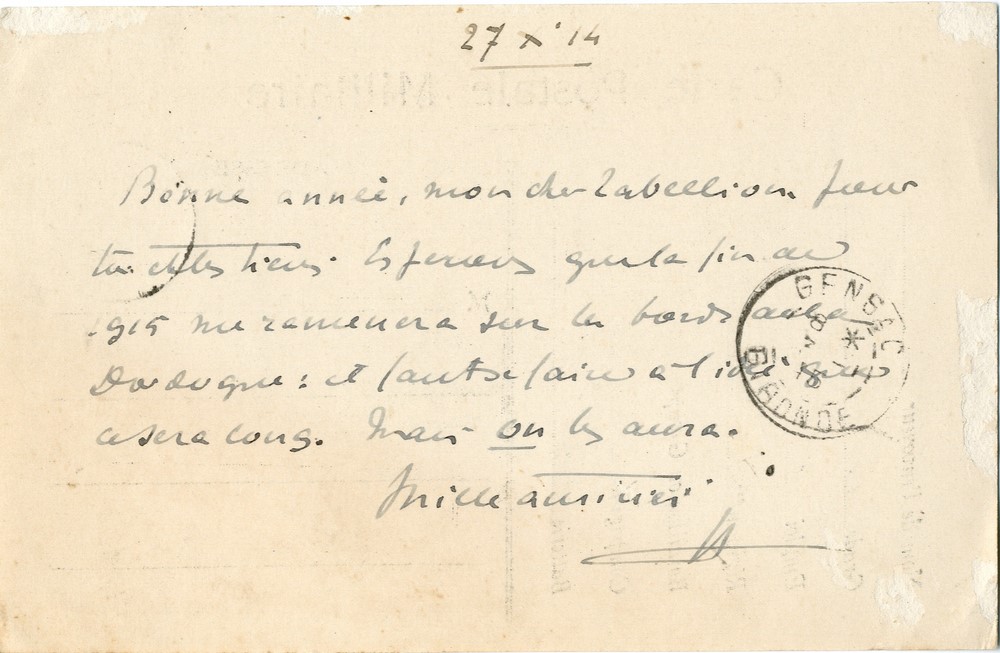 27 X 14
Bonne année, mon cher Tabellion pour
toi et les tiens. Espérons que la fin de
1915 me ramenera sur les bords de la
Dordogne : il faut se faire à l'idée que
ce sera long. Mais on les aura.
Mille amitiés
GENSAC
GIRONDE
Carte Postale Militaire